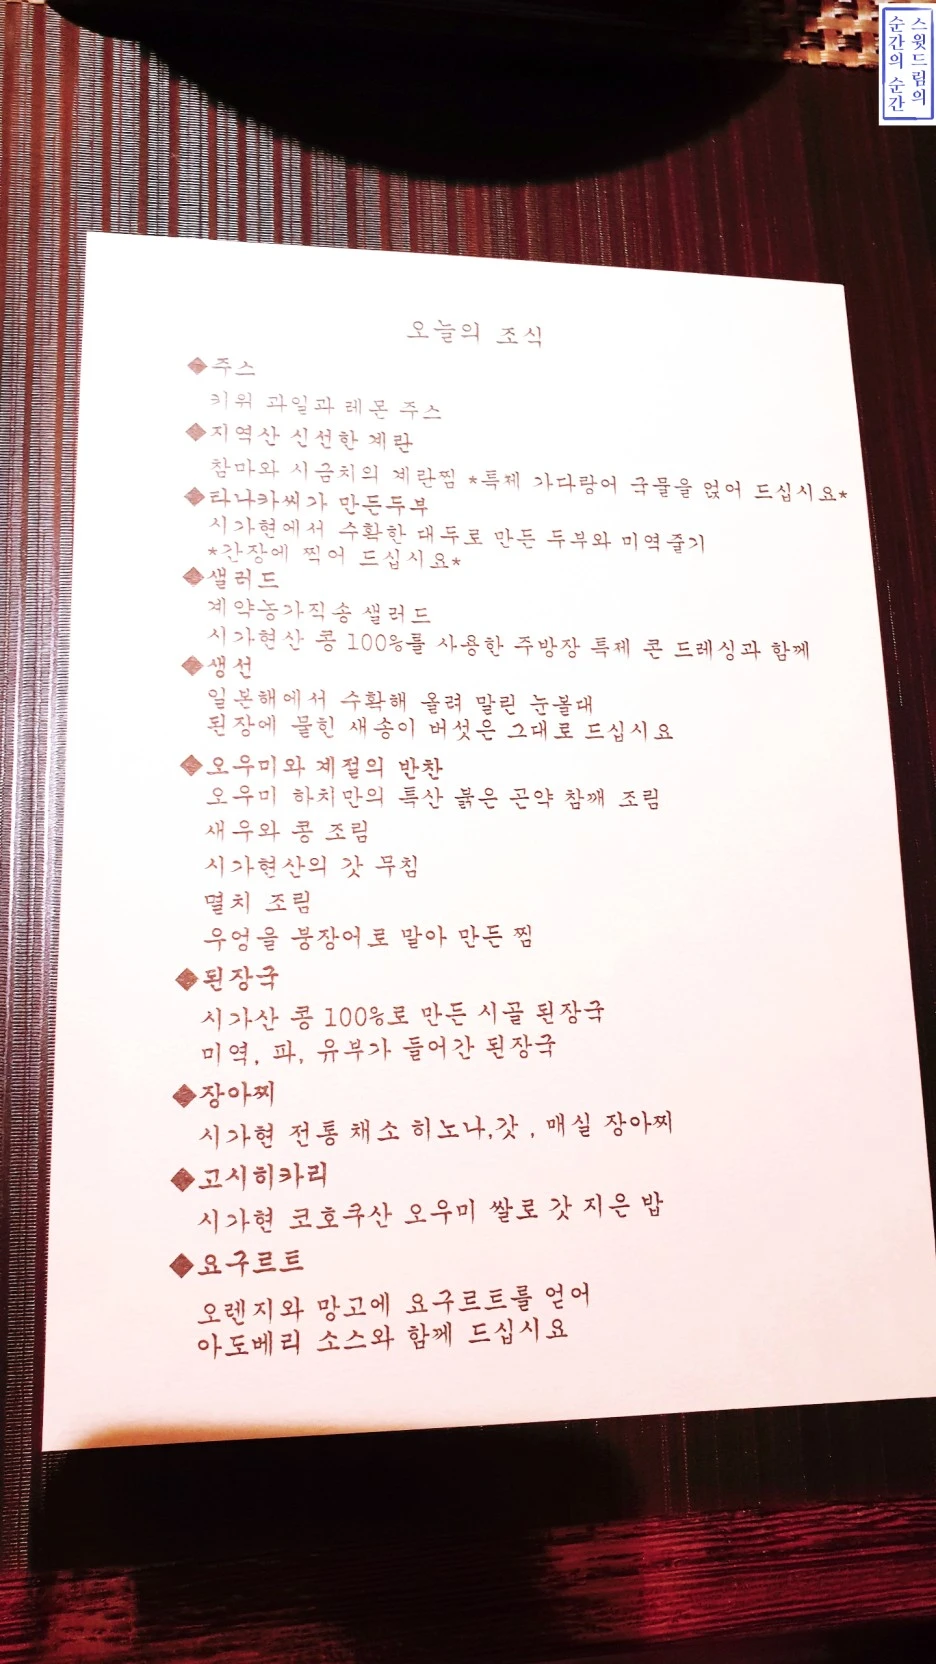 스윗드림의
순간의 순간
오늘의 조식
◆주스
키위 과일과 레몬 주스
◆지역산 신선한 계란
참마와 시금치의 계란찜 *특제 가다랑어 국물을 얹어 드십시요*
◆타나카씨가 만든두부
시가현에서 수확한 대두로 만든 두부와 미역줄기
*간장에 찍어 드십시요*
◆샐러드
계약농가직송 샐러드
시가현산 콩 100%를 사용한 주방장 특제 콘 드레싱과 함께
◆생선
일본해에서 수확해 올려 말린 눈볼대
된장에 물힌 새송이 버섯은 그대로 드십시요
◆오우미와 계절의 반찬
오우미 하치만의 특산 붉은 곤약 참깨 조림
새우와 콩 조림
시가현산의 갓 무침
멸치 조림
우엉을 붕장어로 말아 만든 찜
◆된장국
시가산 콩 100%로 만든 시골 된장국
미역, 파, 유부가 들어간 된장국
◆장아찌
시가현 전통 채소 히노나,갓 , 매실 장아찌
◆고시히카리
시가현 코호쿠산 오우미 쌀로 갓 지은 밥
◆요구르트
오렌지와 망고에 요구르트를 얻어
아도베리 소스와 함께 드십시요